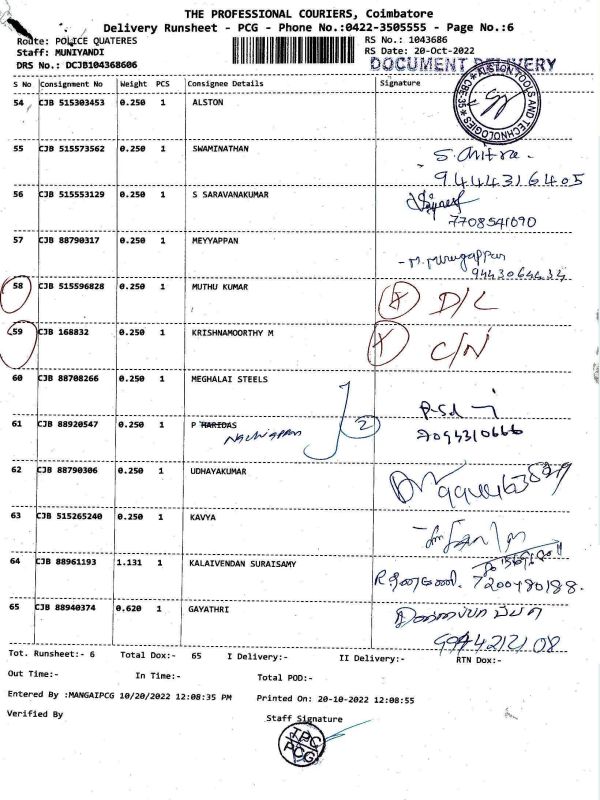 THE PROFESSIONAL COURIERS, Coimbatore
Delivery Runsheet - PCG - Phone No.:0422-3505555 - Page No.:6
Route: POLICE QUATERES
RS No.: 1043686
Staff: MUNIYANDI
RS Date: 20-Oct-2022
DRS No.: DCJB104368606
DOCUMENT DELIVERY
S No Consignment No Weight PCS Consignee Details Signature
54 CJB 515303453 0.250 1 ALSTON
ALSTON TOOLS AND TECHNOLOGIES * CBE-35 *
55 CJB 515573562 0.250 1 SWAMINATHAN S. Chitra.
9444316405
56 CJB 515553129 0.250 1 S SARAVANAKUMAR
7708541090
57 CJB 88790317 0.250 1 MEYYAPPAN
- M. Murugappan
9443064434
58 CJB 515596828 0.250 1 MUTHU KUMAR X D/L
59 CJB 168832 0.250 1 KRISHNAMOORTHY M X C/N
60 CJB 88708266 0.250 1 MEGHALAI STEELS
61 CJB 88920547 0.250 1 P HARIDAS 2
Nachiappan
7094310666
62 CJB 88790306 0.250 1 UDHAYAKUMAR
63 CJB 515265240 0.250 1 KAVYA
64 CJB 88961193 1.131 1 KALAIVENDAN SURAISAMY
7200480188.
65 CJB 88940374 0.620 1 GAYATHRI
9944212108
Tot. Runsheet:- 6 Total Dox:- 65 I Delivery:- II Delivery:- RTN Dox:-
Out Time:- In Time:- Total POD:-
Entered By :MANGAIPCG 10/20/2022 12:08:35 PM Printed On: 20-10-2022 12:08:55
Verified By Staff Signature
TPC
PCG